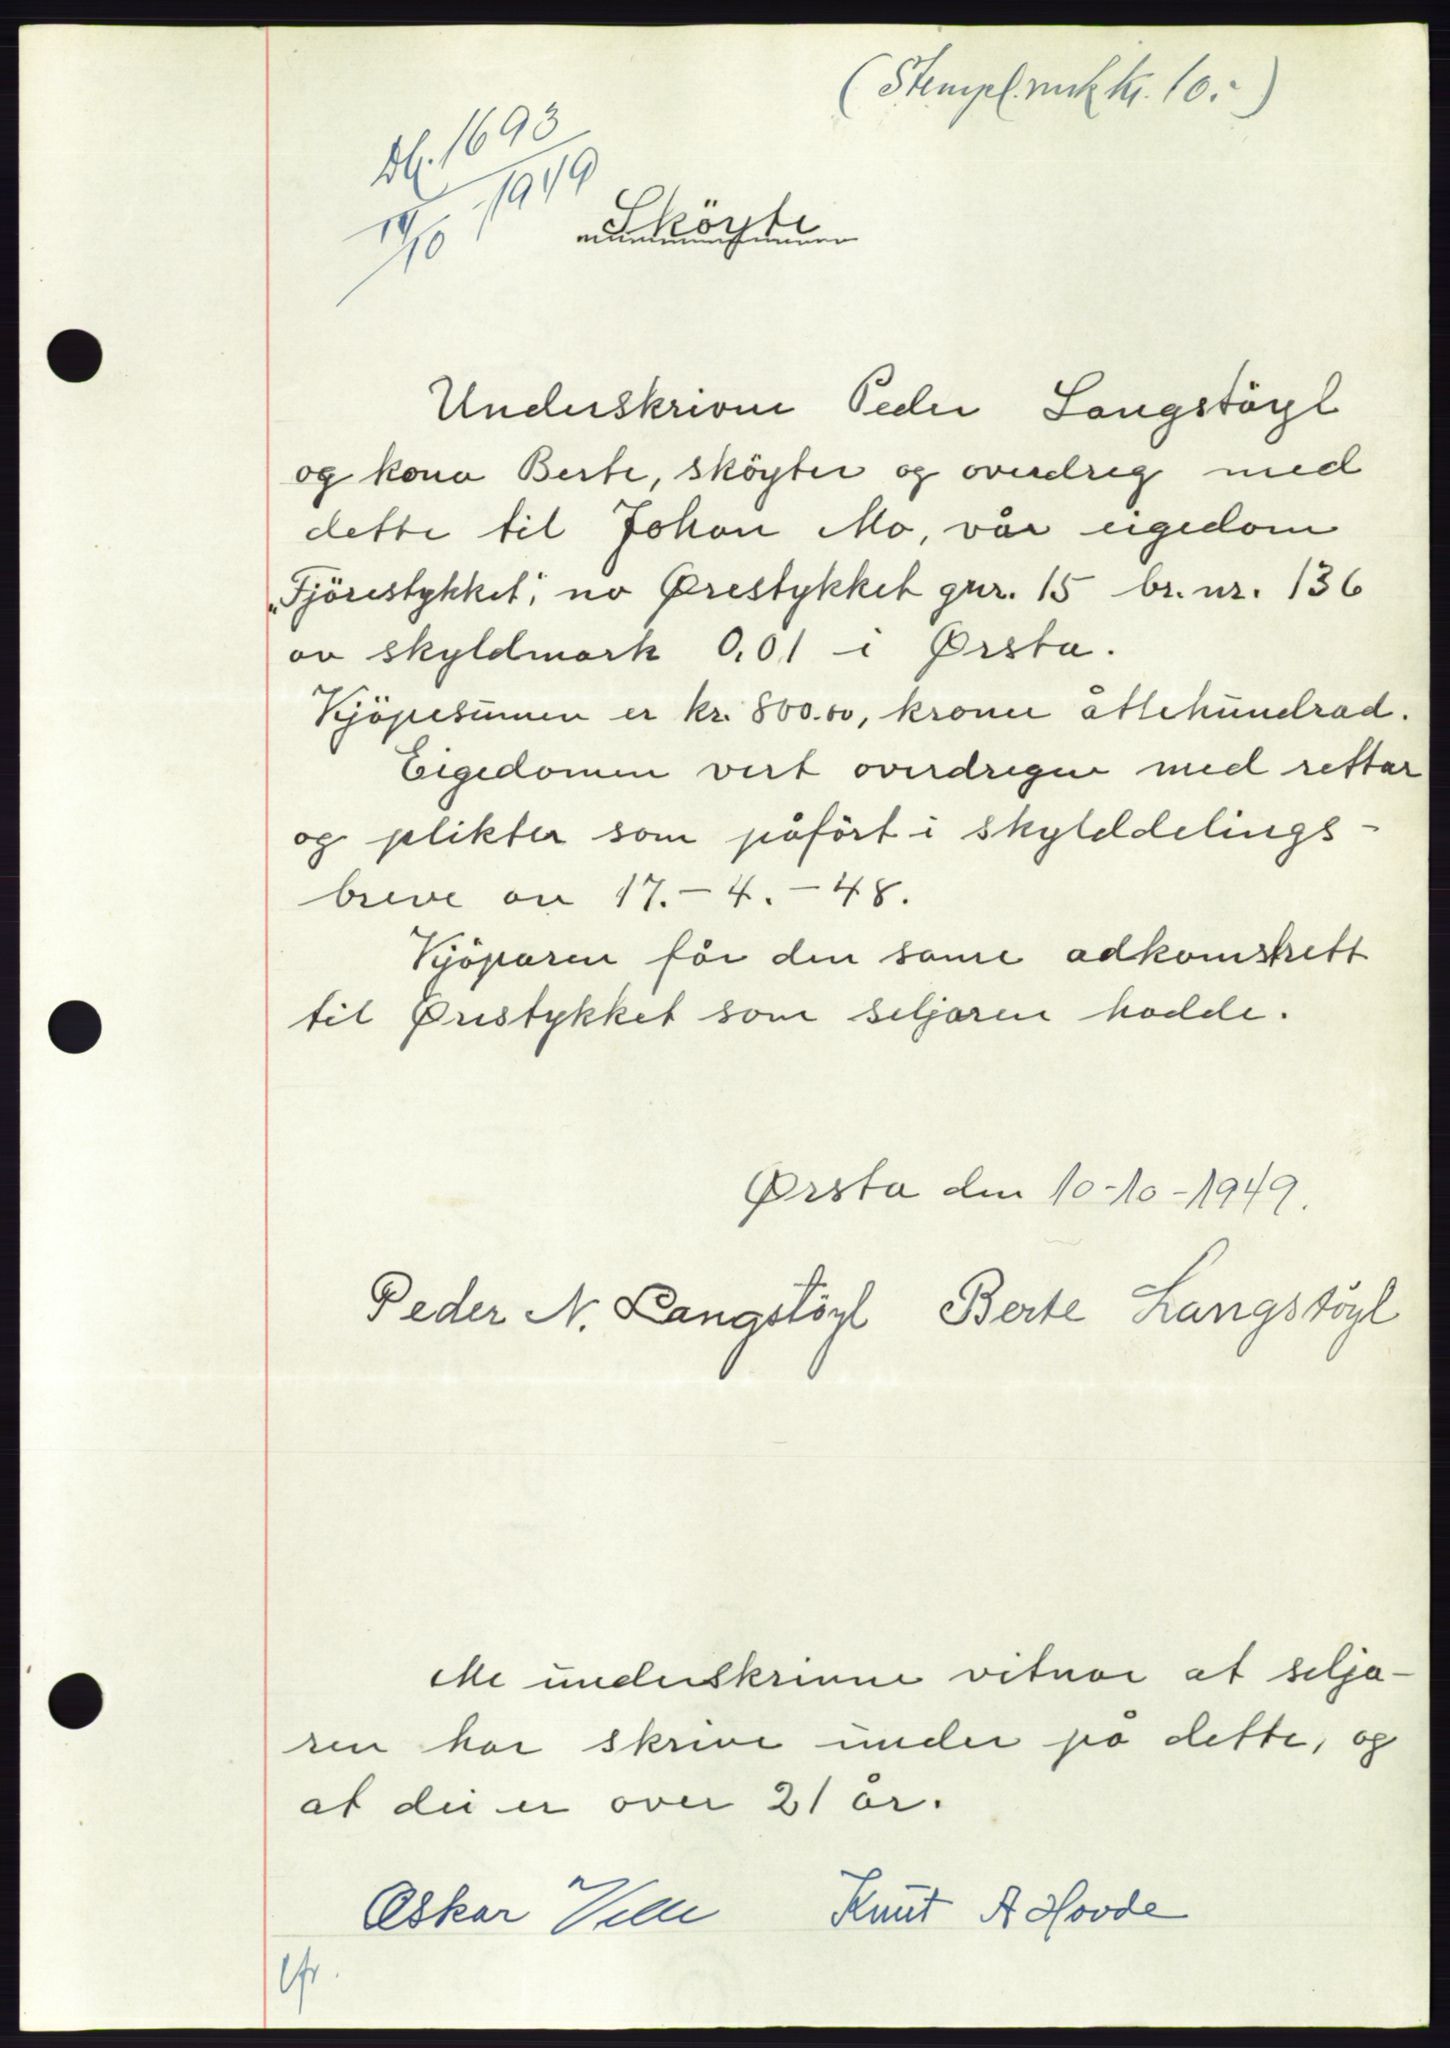 (Stempl.merk kr. 10.-)
Db. 1693
14/10 1949
Sköyte
Underskrivne Peder Langstöyl
og kona Berte, sköyter og overdreg med
dette til Johan Mo, vår eigedom
„Fjörestykket“, no Ørestykket gnr. 15 br. nr. 136
av skyldmark 0,01 i Ørsta.
Kjöpesumen er kr. 800.00, kroner åttehundrad.
Eigedomen vert overdregen med rettar
og plikter som påfört i skylddelings-
breve av 17.-4.-48.
Kjöparen får den same adkomstrett
til Ørestykket som seljaren hadde.
Ørsta den 10-10-1949.
Peder N. Langstöyl Berte Langstöyl
Me underskrivne vitnar at selja-
ren har skrive under på dette, og
at dei er over 21 år.
Oskar Velle Knut A Hovde